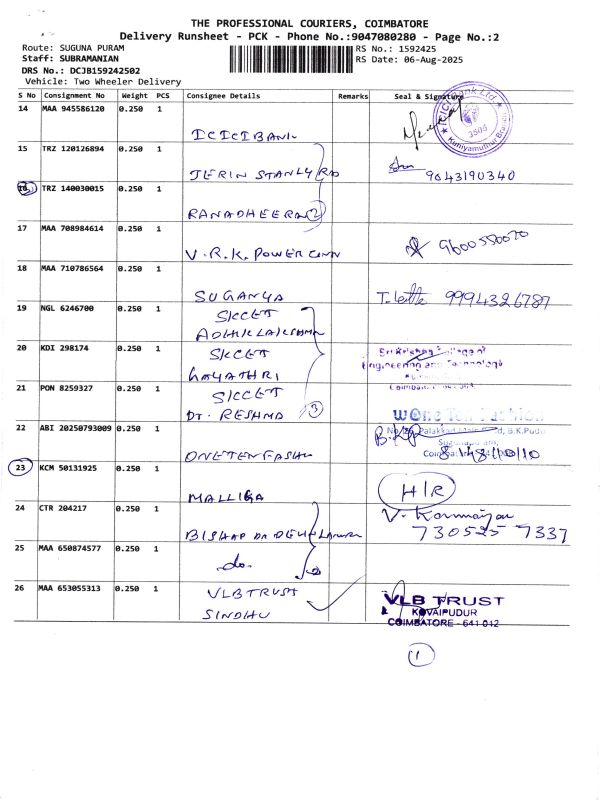 THE PROFESSIONAL COURIERS, COIMBATORE
Delivery Runsheet - PCK - Phone No.:9047080280 - Page No.:2
Route: SUGUNA PURAM
RS No.: 1592425
Staff: SUBRAMANIAN
RS Date: 06-Aug-2025
DRS No.: DCJB159242502
Vehicle: Two Wheeler Delivery
S No Consignment No Weight PCS Consignee Details Remarks Seal & Signature
14 MAA 945586120 0.250 1
ICICI BANK
ICICI Bank Ltd.
3505
Kuniyamuthur Branch
15 TRZ 120126894 0.250 1
JERIN STANLY RD
9043190340
16 TRZ 140030015 0.250 1
RANADHEERAN 2
17 MAA 708984614 0.250 1
V.R.K. POWER CONN
9600550070
18 MAA 710786564 0.250 1
SUGANYA
9994326787
19 NGL 6246700 0.250 1
SKCET
20 KDI 298174 0.250 1
SKCET
GAYATHRI
Sri Krishna College of
Engineering and Technology
21 PON 8259327 0.250 1
SKCET
DT. RESHMA 3
22 ABI 20250793009 0.250 1
ONETENFASHI
W One Ten Fashion
Palakkad Main Road, B.K.Pudu
23 KCM 50131925 0.250 1
MALLIGA
H/R
24 CTR 204217 0.250 1
V.
730525 7337
25 MAA 650874577 0.250 1
do.
26 MAA 653055313 0.250 1
VLB TRUST
SINDHU
VLB TRUST
KOVAIPUDUR
COIMBATORE - 641 042
1